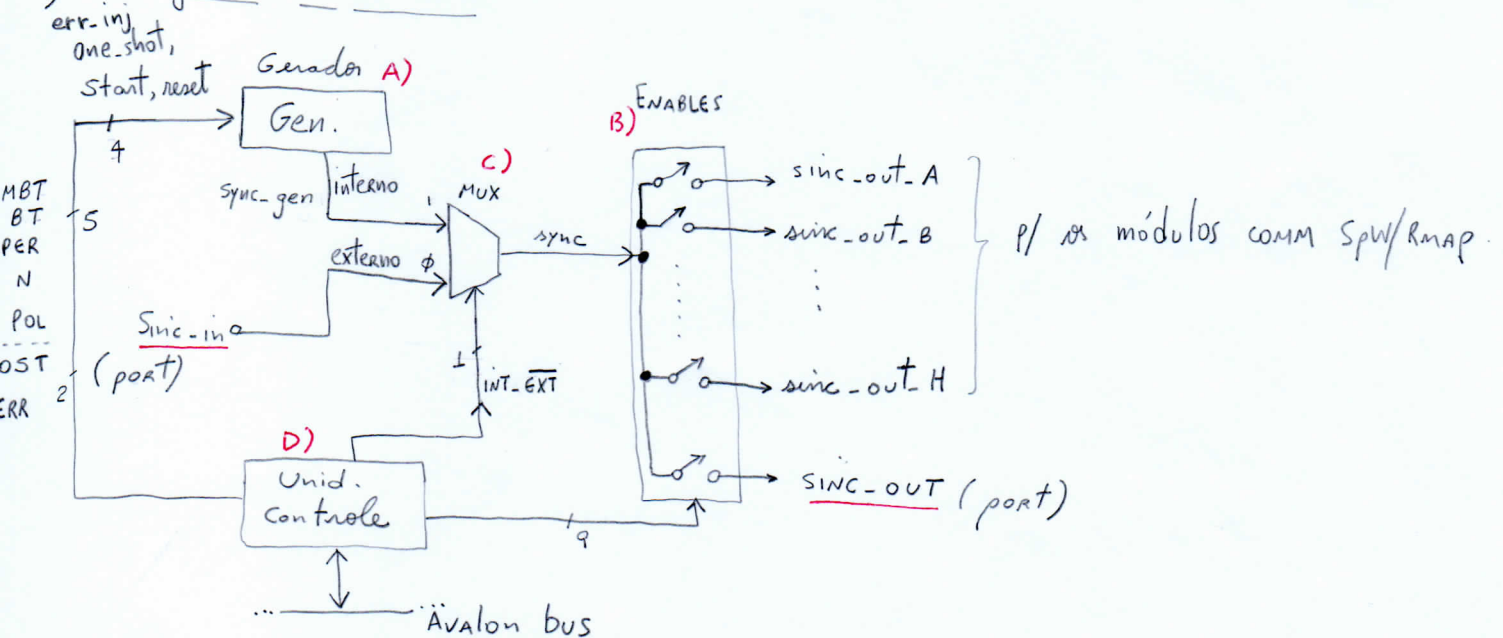 err_inj
one_shot,
start, reset
4
Gerador A)
Gen.
MBT
BT
PER
N
POL
OST
ERR
5
2
sync_gen
interno
externo
Sinc-in
(port)
C)
MUX
1
φ
sync
1
INT_E̅X̅T̅
B)
ENABLES
sinc_out_A
sinc_out_B
sinc_out_H
SINC-OUT (port)
p/ os módulos comm SpW/RMAP.
D)
Unid.
controle
9
... Avalon bus